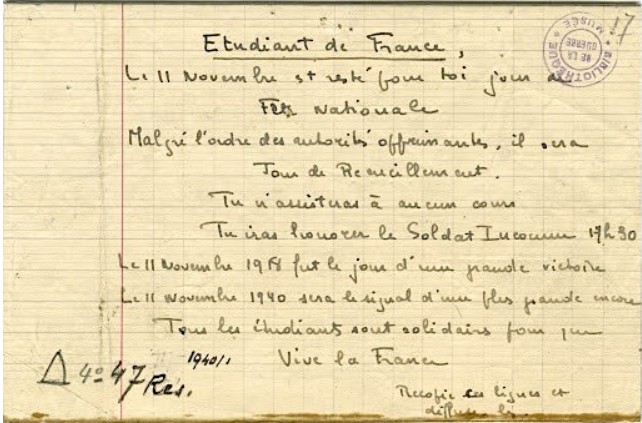 17
BIBLIOTHÈQUE MUSÉE
DE LA GUERRE
Etudiant de France,
Le 11 Novembre est resté pour toi jour de
Fête Nationale
Malgré l'ordre des autorités opprimantes, il sera
Jour de Recueillement.
Tu n'assisteras à aucun cours
Tu iras honorer le Soldat Inconnu 17h30
Le 11 Novembre 1918 fut le jour d'une grande victoire
Le 11 Novembre 1940 sera le signal d'une plus grande encore
Tous les étudiants sont solidaires pour que
Vive la France
1940/1
Δ 4º 47 Rés.
Recopie ces lignes et
diffuse les.